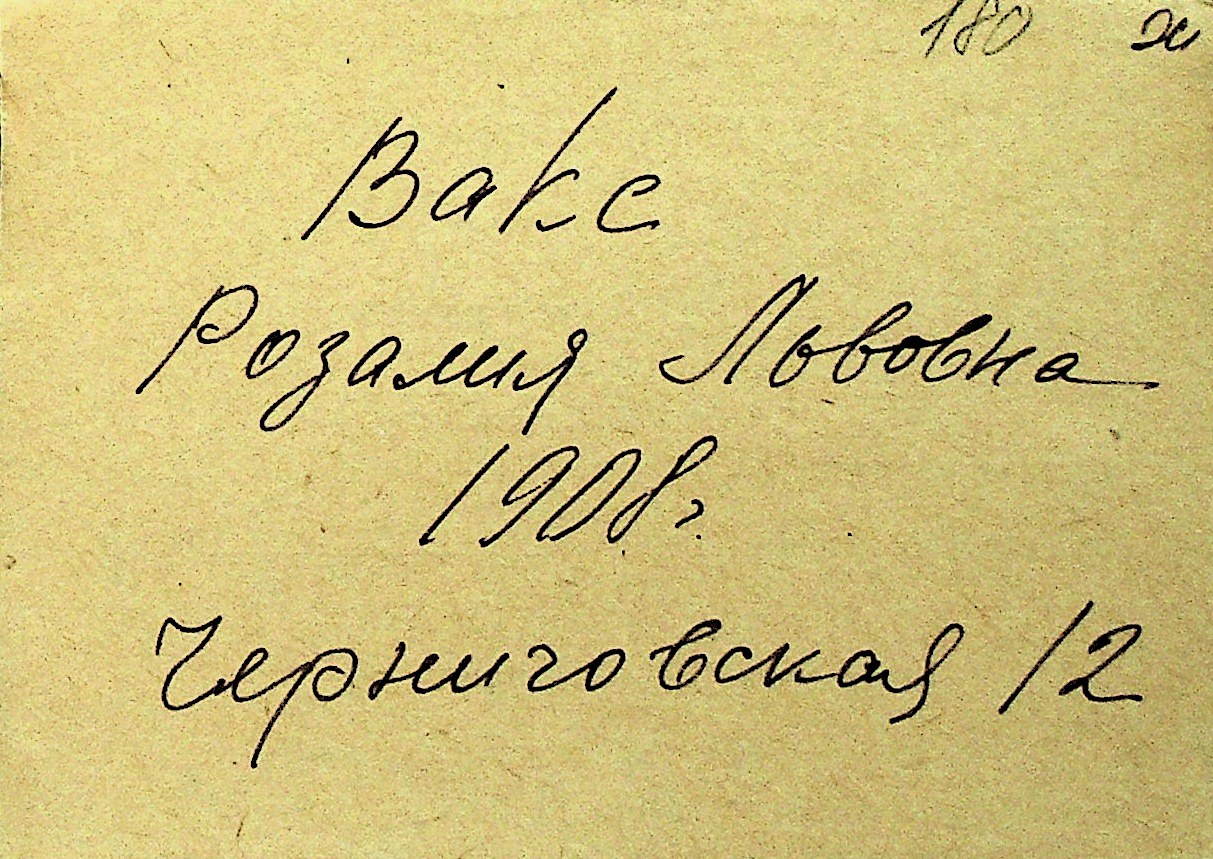 180 ж
Вакс
Розалия Львовна
1908 г.
Черниговская 12